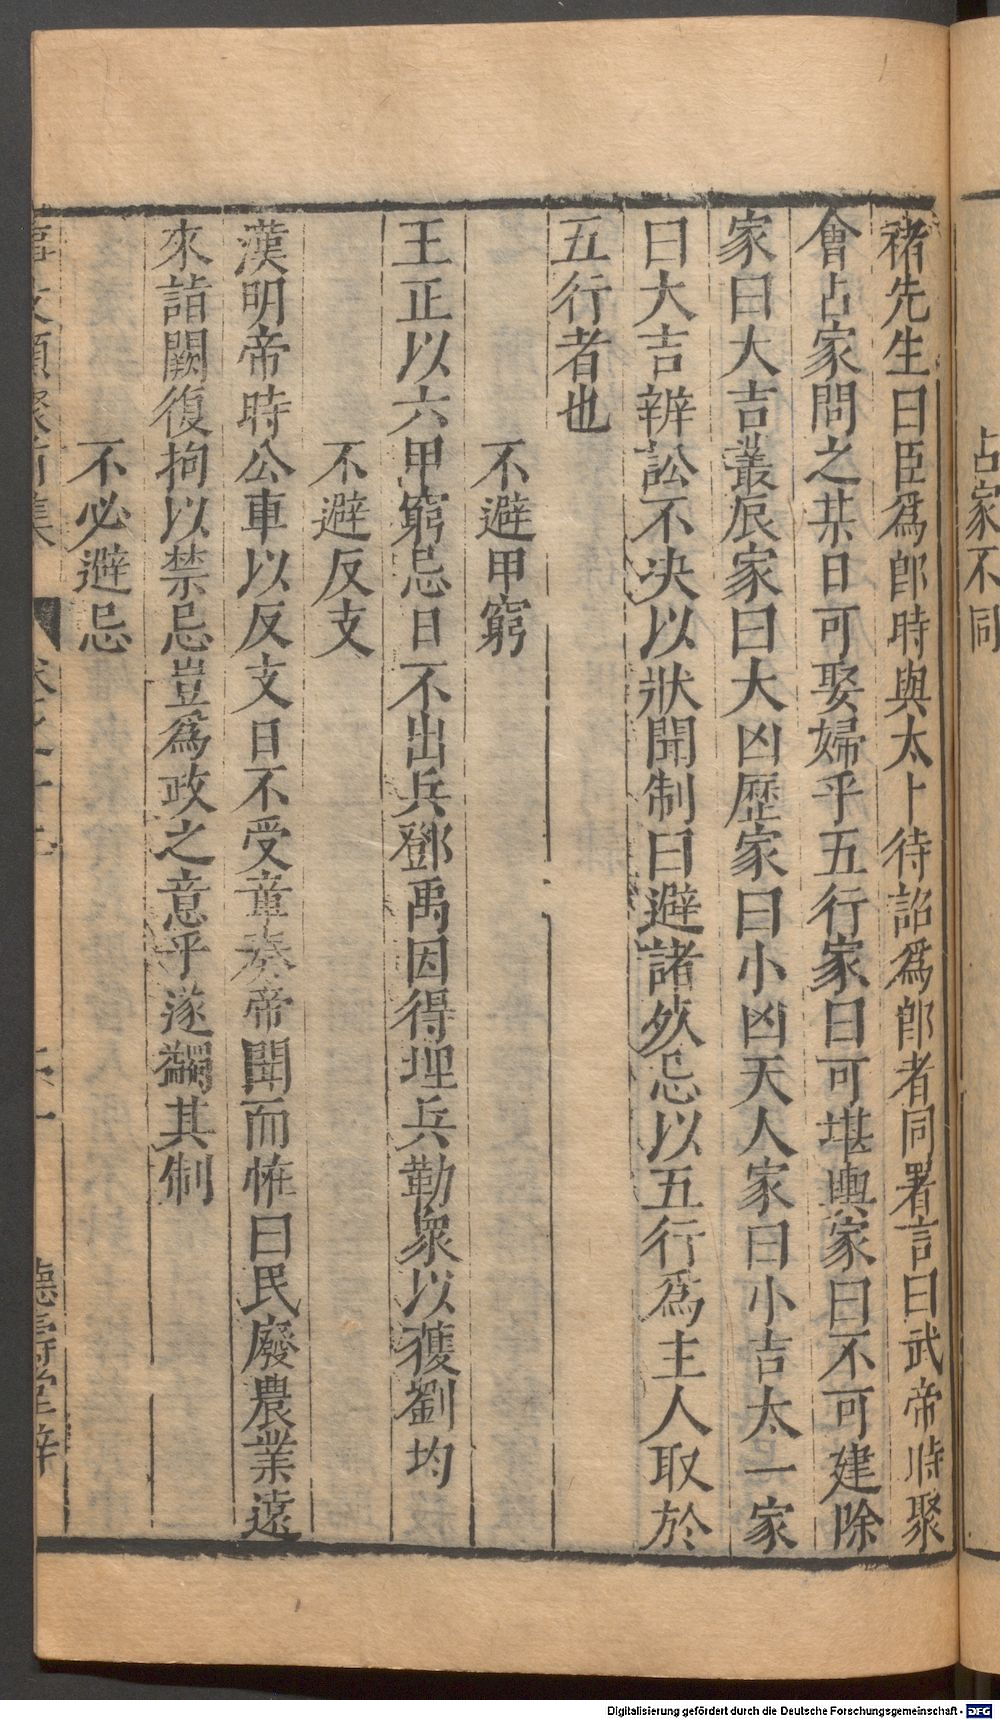 占家不同
褚先生曰臣爲郎時與太卜待詔爲郎者同署言曰武帝時聚
會占家問之某日可娶婦乎五行家曰可堪輿家曰不可建除
家曰大吉叢辰家曰大凶歷家曰小凶天人家曰小吉太一家
曰大吉辨訟不决以狀開制曰避諸夾忌以五行爲主人取於
五行者也
不避甲窮
王正以六甲窮忌日不出兵鄧禹因得埋兵勒衆以獲劉均
不避反支
漢明帝時公車以反支日不受章奏帝聞而恠曰民廢農業遠
來詣闕復拘以禁忌豈爲政之意乎遂蠲其制
不必避忌
事文類聚前集
卷之十二
德壽堂梓
Digitalisierung gefördert durch die Deutsche Forschungsgemeinschaft - DFG